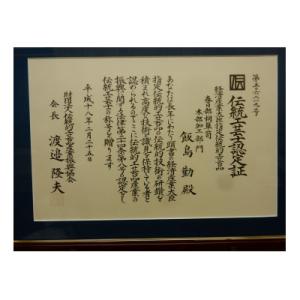 第五六二九号
伝統工芸士認定証
経済産業大臣指定伝統的工芸品
春日部桐箪笥
木部加工部門
飯島 勤 殿
あなたは長年にわたり頭書の経済産業大臣
指定伝統的工芸品の伝統的技術の研鑽を
積まれ高度の技術・識見を保持していると
認められるので、ここに伝統的工芸品産業の
振興に関する法律第二十四条に
伝統工芸士の称号を贈ります
平成十八年二月二十五日
財団法人伝統的工芸品産業振興協会
会長 渡邉 隆夫